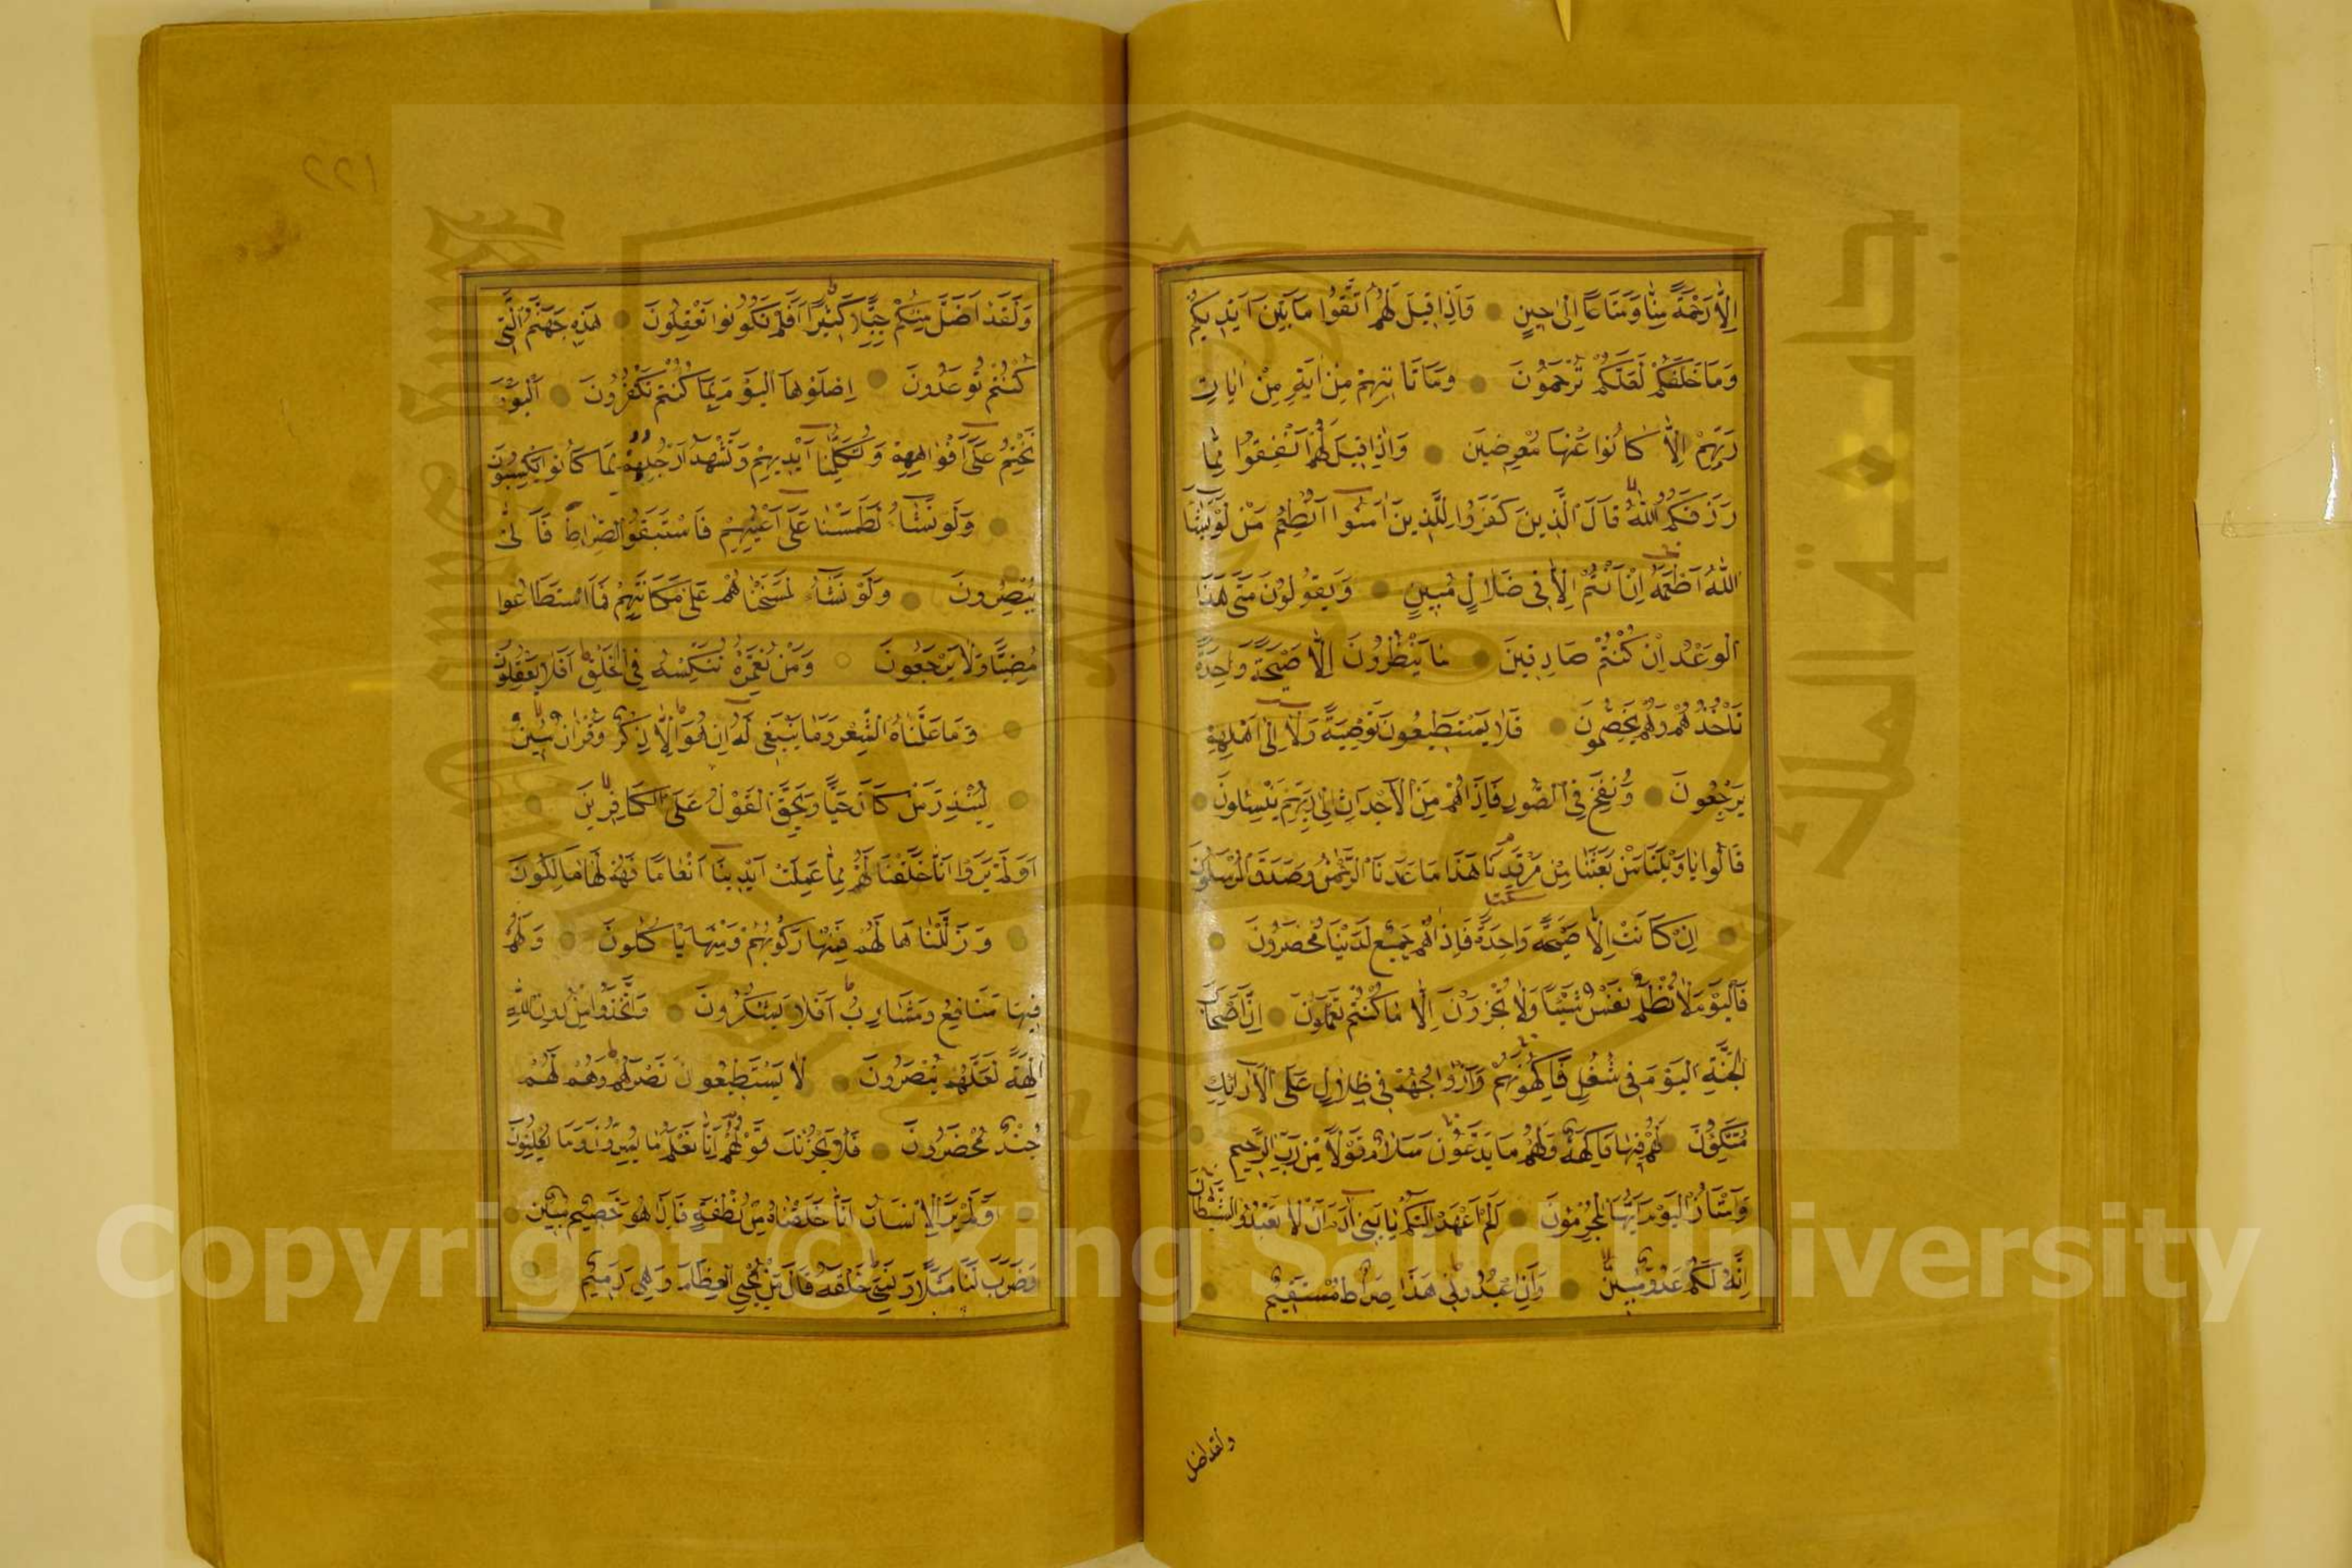 اِلَّا رَحْمَةً مِنَّا وَمَتَاعًا اِلٰى حِينٍ وَاِذَا قِيلَ لَهُمُ اتَّقُوا مَا بَيْنَ اَيْدِيكُمْ
وَمَا خَلْفَكُمْ لَعَلَّكُمْ تُرْحَمُونَ وَمَا تَاْتِيهِمْ مِنْ اٰيَةٍ مِنْ اٰيَاتِ
رَبِّهِمْ اِلَّا كَانُوا عَنْهَا مُعْرِضِينَ وَاِذَا قِيلَ لَهُمْ اَنْفِقُوا مِمَّا
رَزَقَكُمُ اللّٰهُ قَالَ الَّذِينَ كَفَرُوا لِلَّذِينَ اٰمَنُوا اَنُطْعِمُ مَنْ لَوْ يَشَاءُ
اللّٰهُ اَطْعَمَهُ اِنْ اَنْتُمْ اِلَّا فِى ضَلَالٍ مُبِينٍ وَيَقُولُونَ مَتٰى هٰذَا
الْوَعْدُ اِنْ كُنْتُمْ صَادِقِينَ مَا يَنْظُرُونَ اِلَّا صَيْحَةً وَاحِدَةً
تَاْخُذُهُمْ وَهُمْ يَخِصِّمُونَ فَلَا يَسْتَطِيعُونَ تَوْصِيَةً وَلَا اِلٰى اَهْلِهِمْ
يَرْجِعُونَ وَنُفِخَ فِى الصُّورِ فَاِذَا هُمْ مِنَ الْاَجْدَاثِ اِلٰى رَبِّهِمْ يَنْسِلُونَ
قَالُوا يَا وَيْلَنَا مَنْ بَعَثَنَا مِنْ مَرْقَدِنَا هٰذَا مَا وَعَدَنَا الرَّحْمٰنُ وَصَدَقَ الْمُرْسَلُونَ
سكتة
اِنْ كَانَتْ اِلَّا صَيْحَةً وَاحِدَةً فَاِذَا هُمْ جَمِيعٌ لَدَيْنَا مُحْضَرُونَ
فَالْيَوْمَ لَا تُظْلَمُ نَفْسٌ شَيْئًا وَلَا تُجْزَوْنَ اِلَّا مَا كُنْتُمْ تَعْمَلُونَ اِنَّ اَصْحَابَ
الْجَنَّةِ الْيَوْمَ فِى شُغُلٍ فَاكِهُونَ هُمْ وَاَزْوَاجُهُمْ فِى ظِلَالٍ عَلَى الْاَرَائِكِ
مُتَّكِئُونَ لَهُمْ فِيهَا فَاكِهَةٌ وَلَهُمْ مَا يَدَّعُونَ سَلَامٌ قَوْلًا مِنْ رَبٍّ رَحِيمٍ
وَامْتَازُوا الْيَوْمَ اَيُّهَا الْمُجْرِمُونَ اَلَمْ اَعْهَدْ اِلَيْكُمْ يَا بَنِى اٰدَمَ اَنْ لَا تَعْبُدُوا الشَّيْطَانَ
اِنَّهُ لَكُمْ عَدُوٌّ مُبِينٌ وَاَنِ اعْبُدُونِى هٰذَا صِرَاطٌ مُسْتَقِيمٌ
ولقد اضل
وَلَقَدْ اَضَلَّ مِنْكُمْ جِبِلًّا كَثِيرًا اَفَلَمْ تَكُونُوا تَعْقِلُونَ هٰذِهِ جَهَنَّمُ الَّتِى
كُنْتُمْ تُوعَدُونَ اِصْلَوْهَا الْيَوْمَ بِمَا كُنْتُمْ تَكْفُرُونَ اَلْيَوْمَ
نَخْتِمُ عَلٰى اَفْوَاهِهِمْ وَتُكَلِّمُنَا اَيْدِيهِمْ وَتَشْهَدُ اَرْجُلُهُمْ بِمَا كَانُوا يَكْسِبُونَ
وَلَوْ نَشَاءُ لَطَمَسْنَا عَلٰى اَعْيُنِهِمْ فَاسْتَبَقُوا الصِّرَاطَ فَاَنّٰى
يُبْصِرُونَ وَلَوْ نَشَاءُ لَمَسَخْنَاهُمْ عَلٰى مَكَانَتِهِمْ فَمَا اسْتَطَاعُوا
مُضِيًّا وَلَا يَرْجِعُونَ وَمَنْ نُعَمِّرْهُ نُنَكِّسْهُ فِى الْخَلْقِ اَفَلَا يَعْقِلُونَ
وَمَا عَلَّمْنَاهُ الشِّعْرَ وَمَا يَنْبَغِى لَهُ اِنْ هُوَ اِلَّا ذِكْرٌ وَقُرْاٰنٌ مُبِينٌ
لِيُنْذِرَ مَنْ كَانَ حَيًّا وَيَحِقَّ الْقَوْلُ عَلَى الْكَافِرِينَ
اَوَلَمْ يَرَوْا اَنَّا خَلَقْنَا لَهُمْ مِمَّا عَمِلَتْ اَيْدِينَا اَنْعَامًا فَهُمْ لَهَا مَالِكُونَ
وَذَلَّلْنَاهَا لَهُمْ فَمِنْهَا رَكُوبُهُمْ وَمِنْهَا يَاْكُلُونَ وَلَهُمْ
فِيهَا مَنَافِعُ وَمَشَارِبُ اَفَلَا يَشْكُرُونَ وَاتَّخَذُوا مِنْ دُونِ اللّٰهِ
اٰلِهَةً لَعَلَّهُمْ يُنْصَرُونَ لَا يَسْتَطِيعُونَ نَصْرَهُمْ وَهُمْ لَهُمْ
جُنْدٌ مُحْضَرُونَ فَلَا يَحْزُنْكَ قَوْلُهُمْ اِنَّا نَعْلَمُ مَا يُسِرُّونَ وَمَا يُعْلِنُونَ
اَوَلَمْ يَرَ الْاِنْسَانُ اَنَّا خَلَقْنَاهُ مِنْ نُطْفَةٍ فَاِذَا هُوَ خَصِيمٌ مُبِينٌ
وَضَرَبَ لَنَا مَثَلًا وَنَسِىَ خَلْقَهُ قَالَ مَنْ يُحْيِى الْعِظَامَ وَهِىَ رَمِيمٌ
Copyright © King Saud University